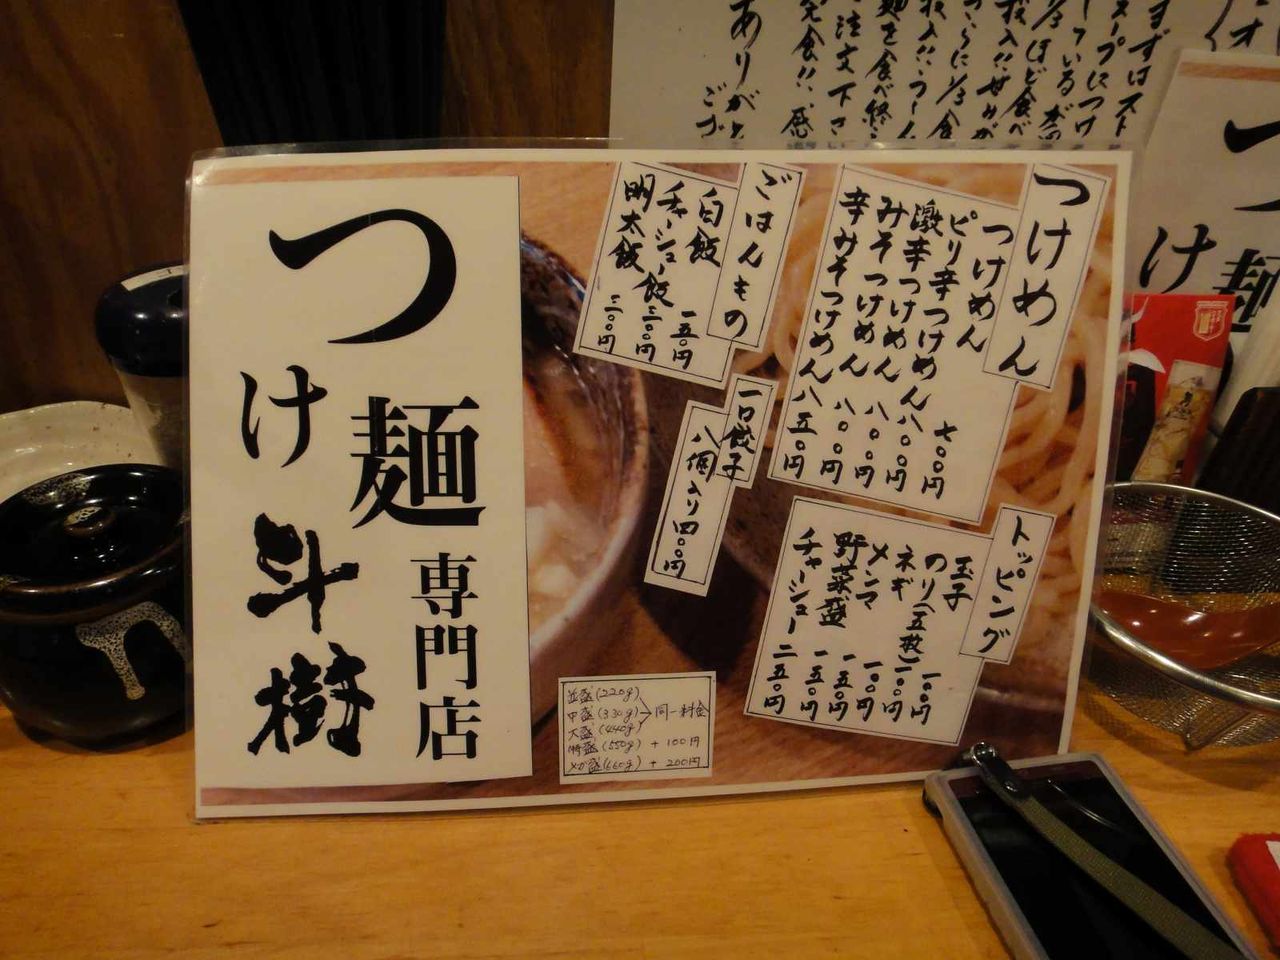 つけ麺専門店
つけ斗樹
つけめん
つけめん 七〇〇円
ピリ辛つけめん 八〇〇円
激辛つけめん 八〇〇円
みそつけめん 八〇〇円
辛みそつけめん 八五〇円
ごはんもの
白飯 一五〇円
チャーシュー飯 三〇〇円
明太飯 三〇〇円
一口餃子
八個入り 四〇〇円
トッピング
玉子 一〇〇円
のり(五枚) 一〇〇円
ネギ 一〇〇円
メンマ 一五〇円
野菜盛 一五〇円
チャーシュー 二五〇円
並盛(220g)
中盛(330g) 同一料金
大盛(440g)
特盛(550g) + 100円
メガ盛(660g) + 200円
まずはスト
スープにつけ
1/3ほど食べ
投入!!
さらに1/3食
投入!!
麺を食べ終
ご注文下さ
完食!!
ありがと
ござ
つけ麺